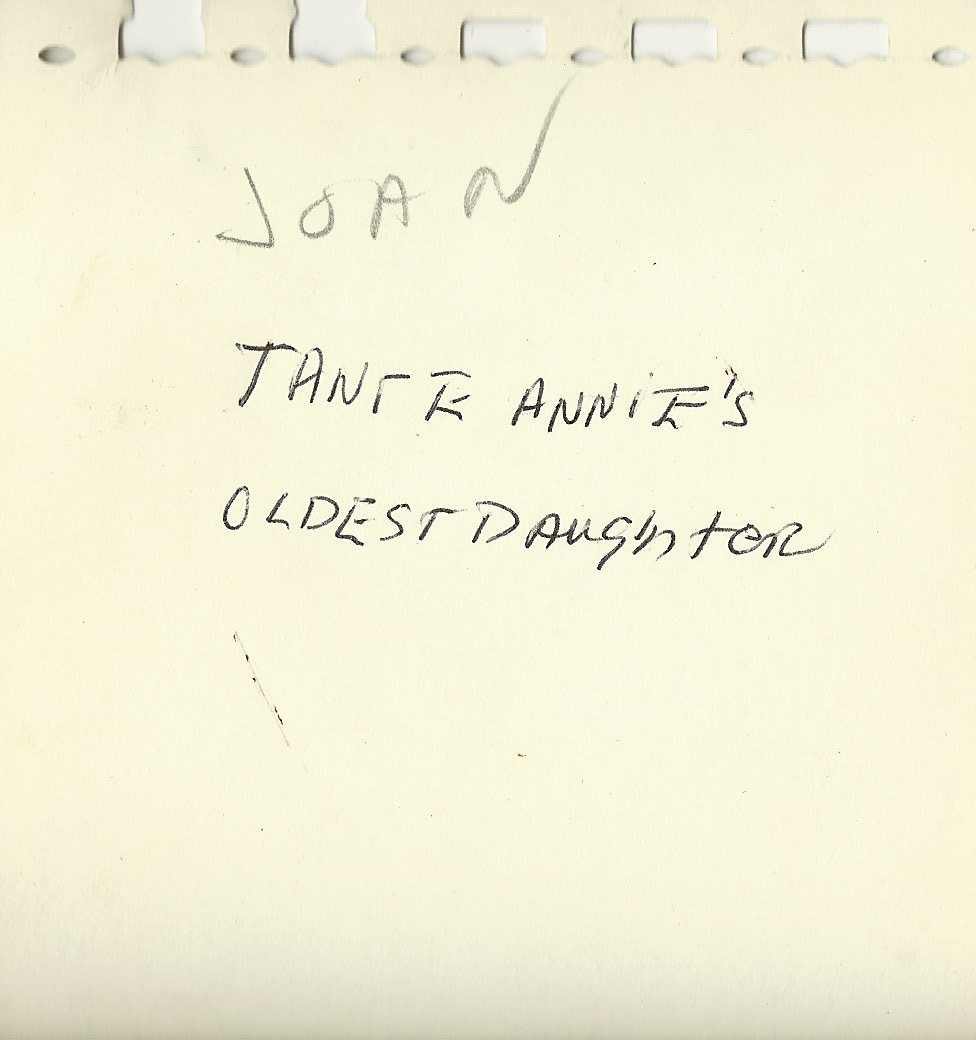 JOAN
TANTE ANNIE'S
OLDEST DAughter